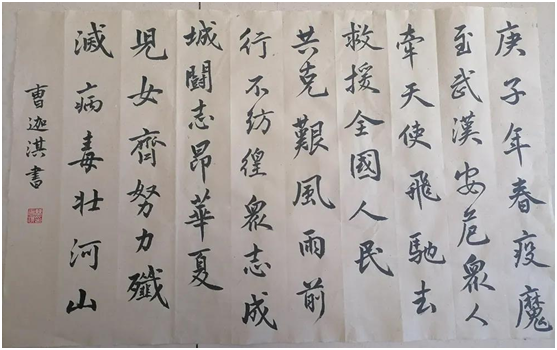 庚子年春疫魔
至武漢安危眾人
牽天使飛馳去
救援全國人民
共克艱風雨前
行不彷徨眾志成
城鬪志昂華夏
兒女齊努力殲
滅病毒壯河山
曹迦淇書